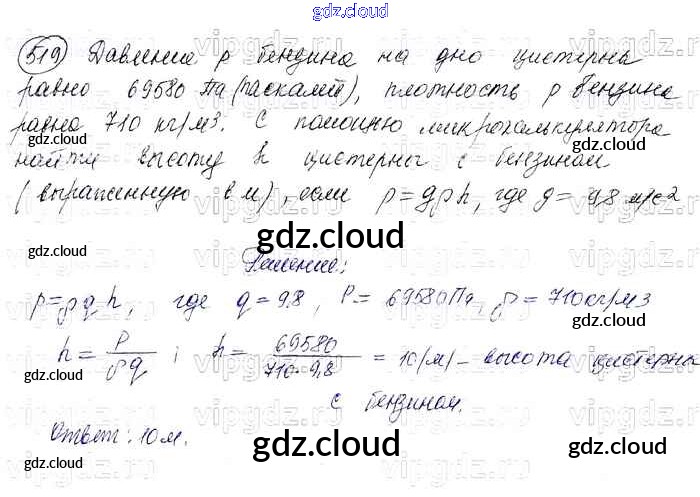 gdz.cloud
519 Давление p бензина на дно цистерны
равно 69580 Па (паскалей), плотность ρ бензина
равна 710 кг/м3. С помощью микрокалькулятора
найти высоту h цистерны с бензином
(выраженную в м), если p=gρh, где g=9,8 м/с2
Решение:
p=ρgh, где g=9,8, P=69580Па, ρ=710кг/м3
h=P/ρg; h=69580/710·9,8=10(м)-высота цистерны
с бензином.
Ответ: 10м.
gdz.cloud
gdz.cloud
gdz.cloud
gdz.cloud
gdz.cloud
gdz.cloud
gdz.cloud
gdz.cloud
gdz.cloud
gdz.cloud